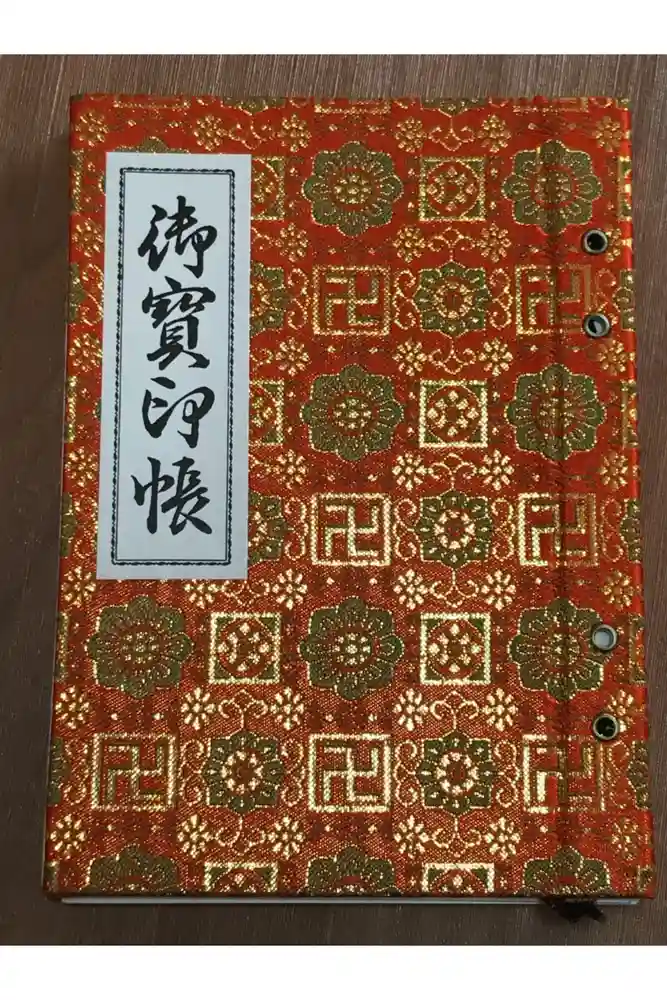 御寶印帳